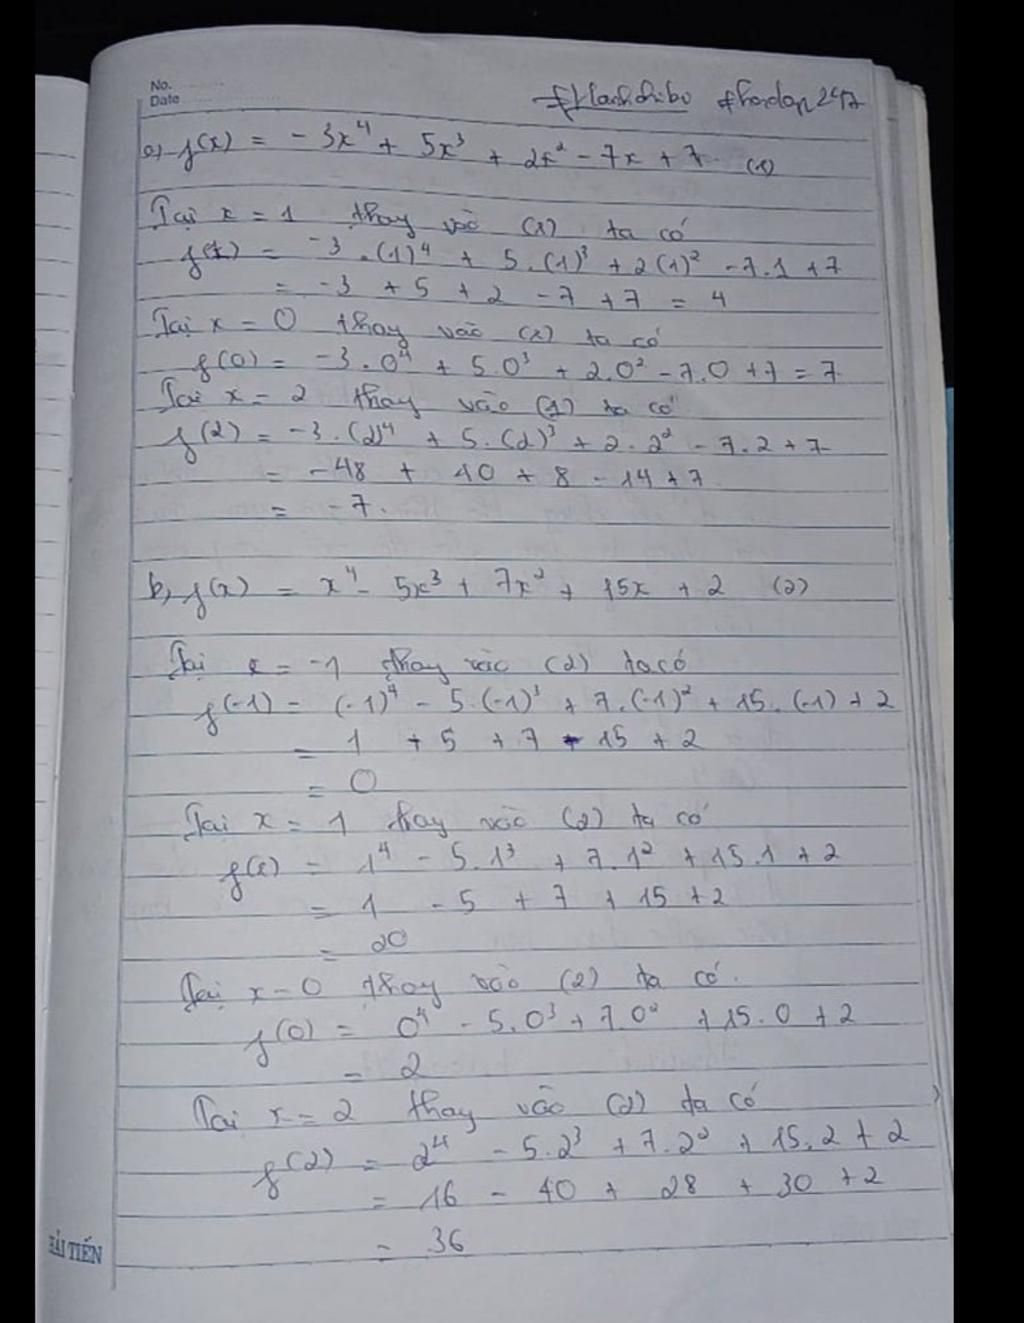 No.
Date
a, f(x) = -3x⁴ + 5x³ + 2x² - 7x + 7. (1)
Tại x = 1 thay vào (1) ta có
f(1) = -3.(1)⁴ + 5.(1)³ + 2(1)² - 7.1 + 7
= -3 + 5 + 2 - 7 + 7 = 4
Tại x = 0 thay vào (1) ta có
f(0) = -3.0⁴ + 5.0³ + 2.0² - 7.0 + 7 = 7
Tại x = 2 thay vào (1) ta có
f(2) = -3.(2)⁴ + 5.(2)³ + 2.2² - 7.2 + 7
= -48 + 40 + 8 - 14 + 7
= -7.
b, f(x) = x⁴ - 5x³ + 7x² + 15x + 2 (2)
Tại x = -1 thay vào (2) ta có
f(-1) = (-1)⁴ - 5.(-1)³ + 7.(-1)² + 15.(-1) + 2
= 1 + 5 + 7 - 15 + 2
= 0
Tại x = 1 thay vào (2) ta có
f(1) = 1⁴ - 5.1³ + 7.1² + 15.1 + 2
= 1 - 5 + 7 + 15 + 2
= 20
Tại x = 0 thay vào (2) ta có.
f(0) = 0⁴ - 5.0³ + 7.0² + 15.0 + 2
= 2
Tại x = 2 thay vào (2) ta có
f(2) = 2⁴ - 5.2³ + 7.2² + 15.2 + 2
= 16 - 40 + 28 + 30 + 2
= 36
HẢI TIẾN